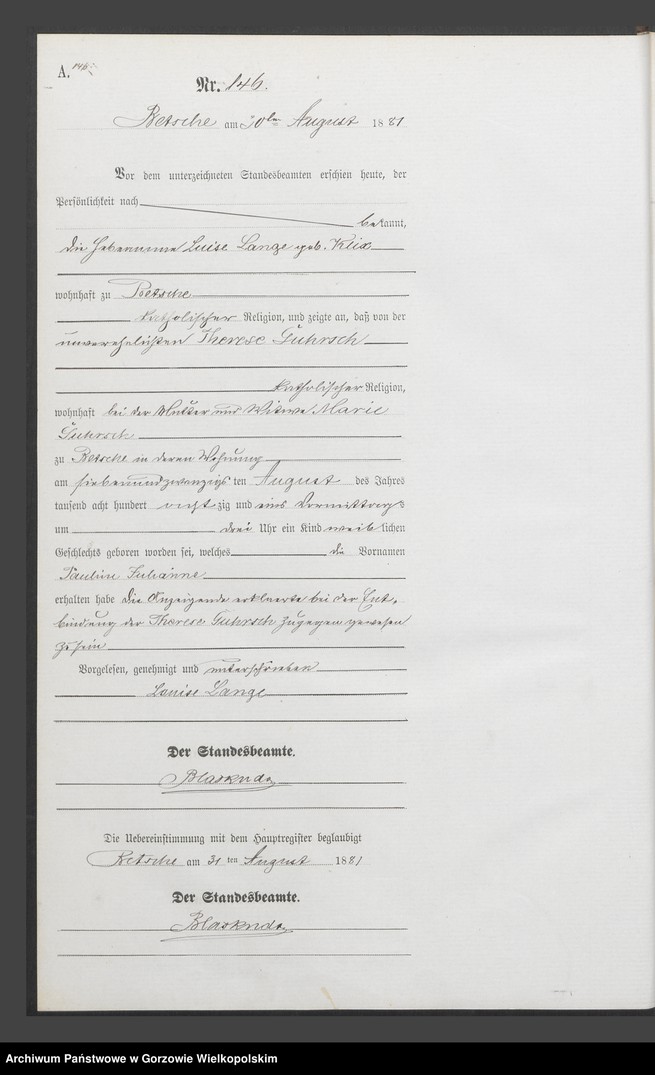 A. 146.
Nr. 146.
Betsche am 30ten August 1881
Vor dem unterzeichneten Standesbeamten erschien heute, der
Persönlichkeit nach
bekannt,
die Hebamme Luise Lange geb. Klix
wohnhaft zu Betsche
katholischer Religion, und zeigte an, daß von der
unverehelichten Therese Guhrsch
katholischer Religion,
wohnhaft bei der Mutter und Witwe Marie
Guhrsch
zu Betsche in deren Wohnung
am siebenundzwanzigsten August des Jahres
tausend acht hundert achtzig und eins Vormittags
um drei Uhr ein Kind weiblichen
Geschlechts geboren worden sei, welches die Vornamen
Pauline Juhanne
erhalten habe die Anzeigende erklaerte bei der Ent-
bindung der Therese Guhrsch zugegen gewesen
zu sein
Vorgelesen, genehmigt und unterschrieben
Louise Lange
Der Standesbeamte.
Die Uebereinstimmung mit dem Hauptregister beglaubigt
Betsche am 31 ten August 1881
Der Standesbeamte.
Archiwum Państwowe w Gorzowie Wielkopolskim